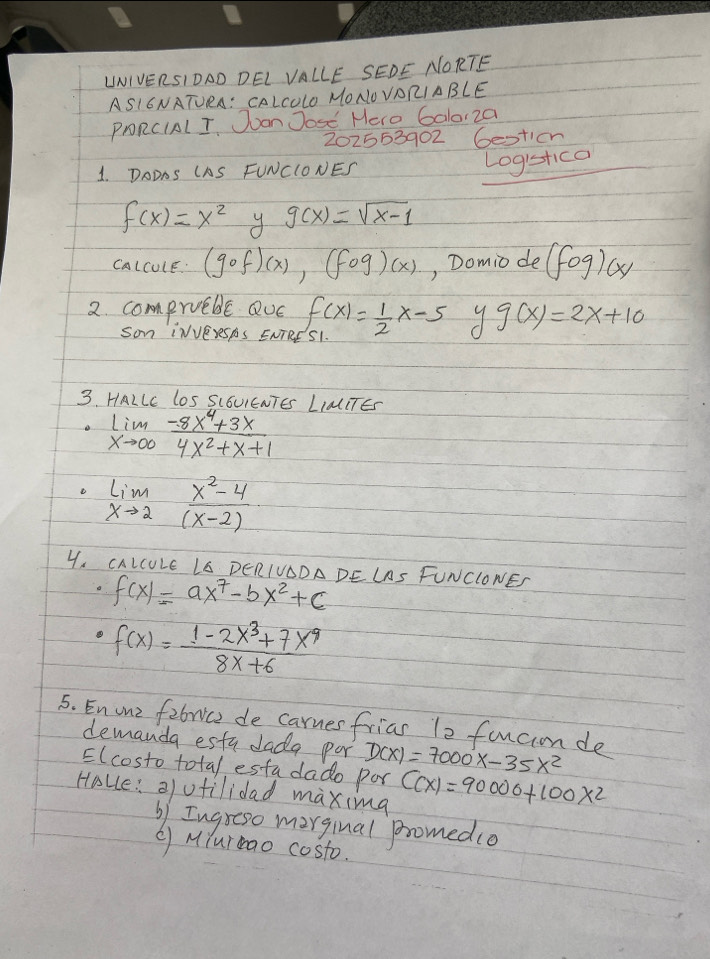 UNIVERSIDAD DEL VALLE SEDE NORTE
ASIGNATURA: CALCULO MONOVARIABLE
PARCIAL I. Juan José Mera Galarza
202553902 Gestion
Logistica
1. DADAS LAS FUNCIONES
f(x) = x² y g(x) = √x-1
CALCULE: (gof)(x), (fog)(x), Domio de (fog)(x)
2. COMPRUEBE QUE f(x) = 1/2 x - 5 y g(x) = 2x + 10
SON INVERSAS ENTRE SI.
3. HALLE LOS SIGUIENTES LIMITES
• Lim x→∞ (-8x⁴+3x)/(4x²+x+1)
• Lim x→2 (x²-4)/(x-2)
4. CALCULE LA DERIVADA DE LAS FUNCIONES
• f(x) = ax⁷ - bx² + c
• f(x) = (1-2x³+7x⁹)/(8x+6)
5. En una fabrica de carnes frias la funcion de
demanda esta dada por D(x) = 7000x - 35x²
El costo total esta dado por C(x) = 90000 + 100x²
HALLE: a) utilidad màxima
b) Ingreso marginal promedio
c) costo.